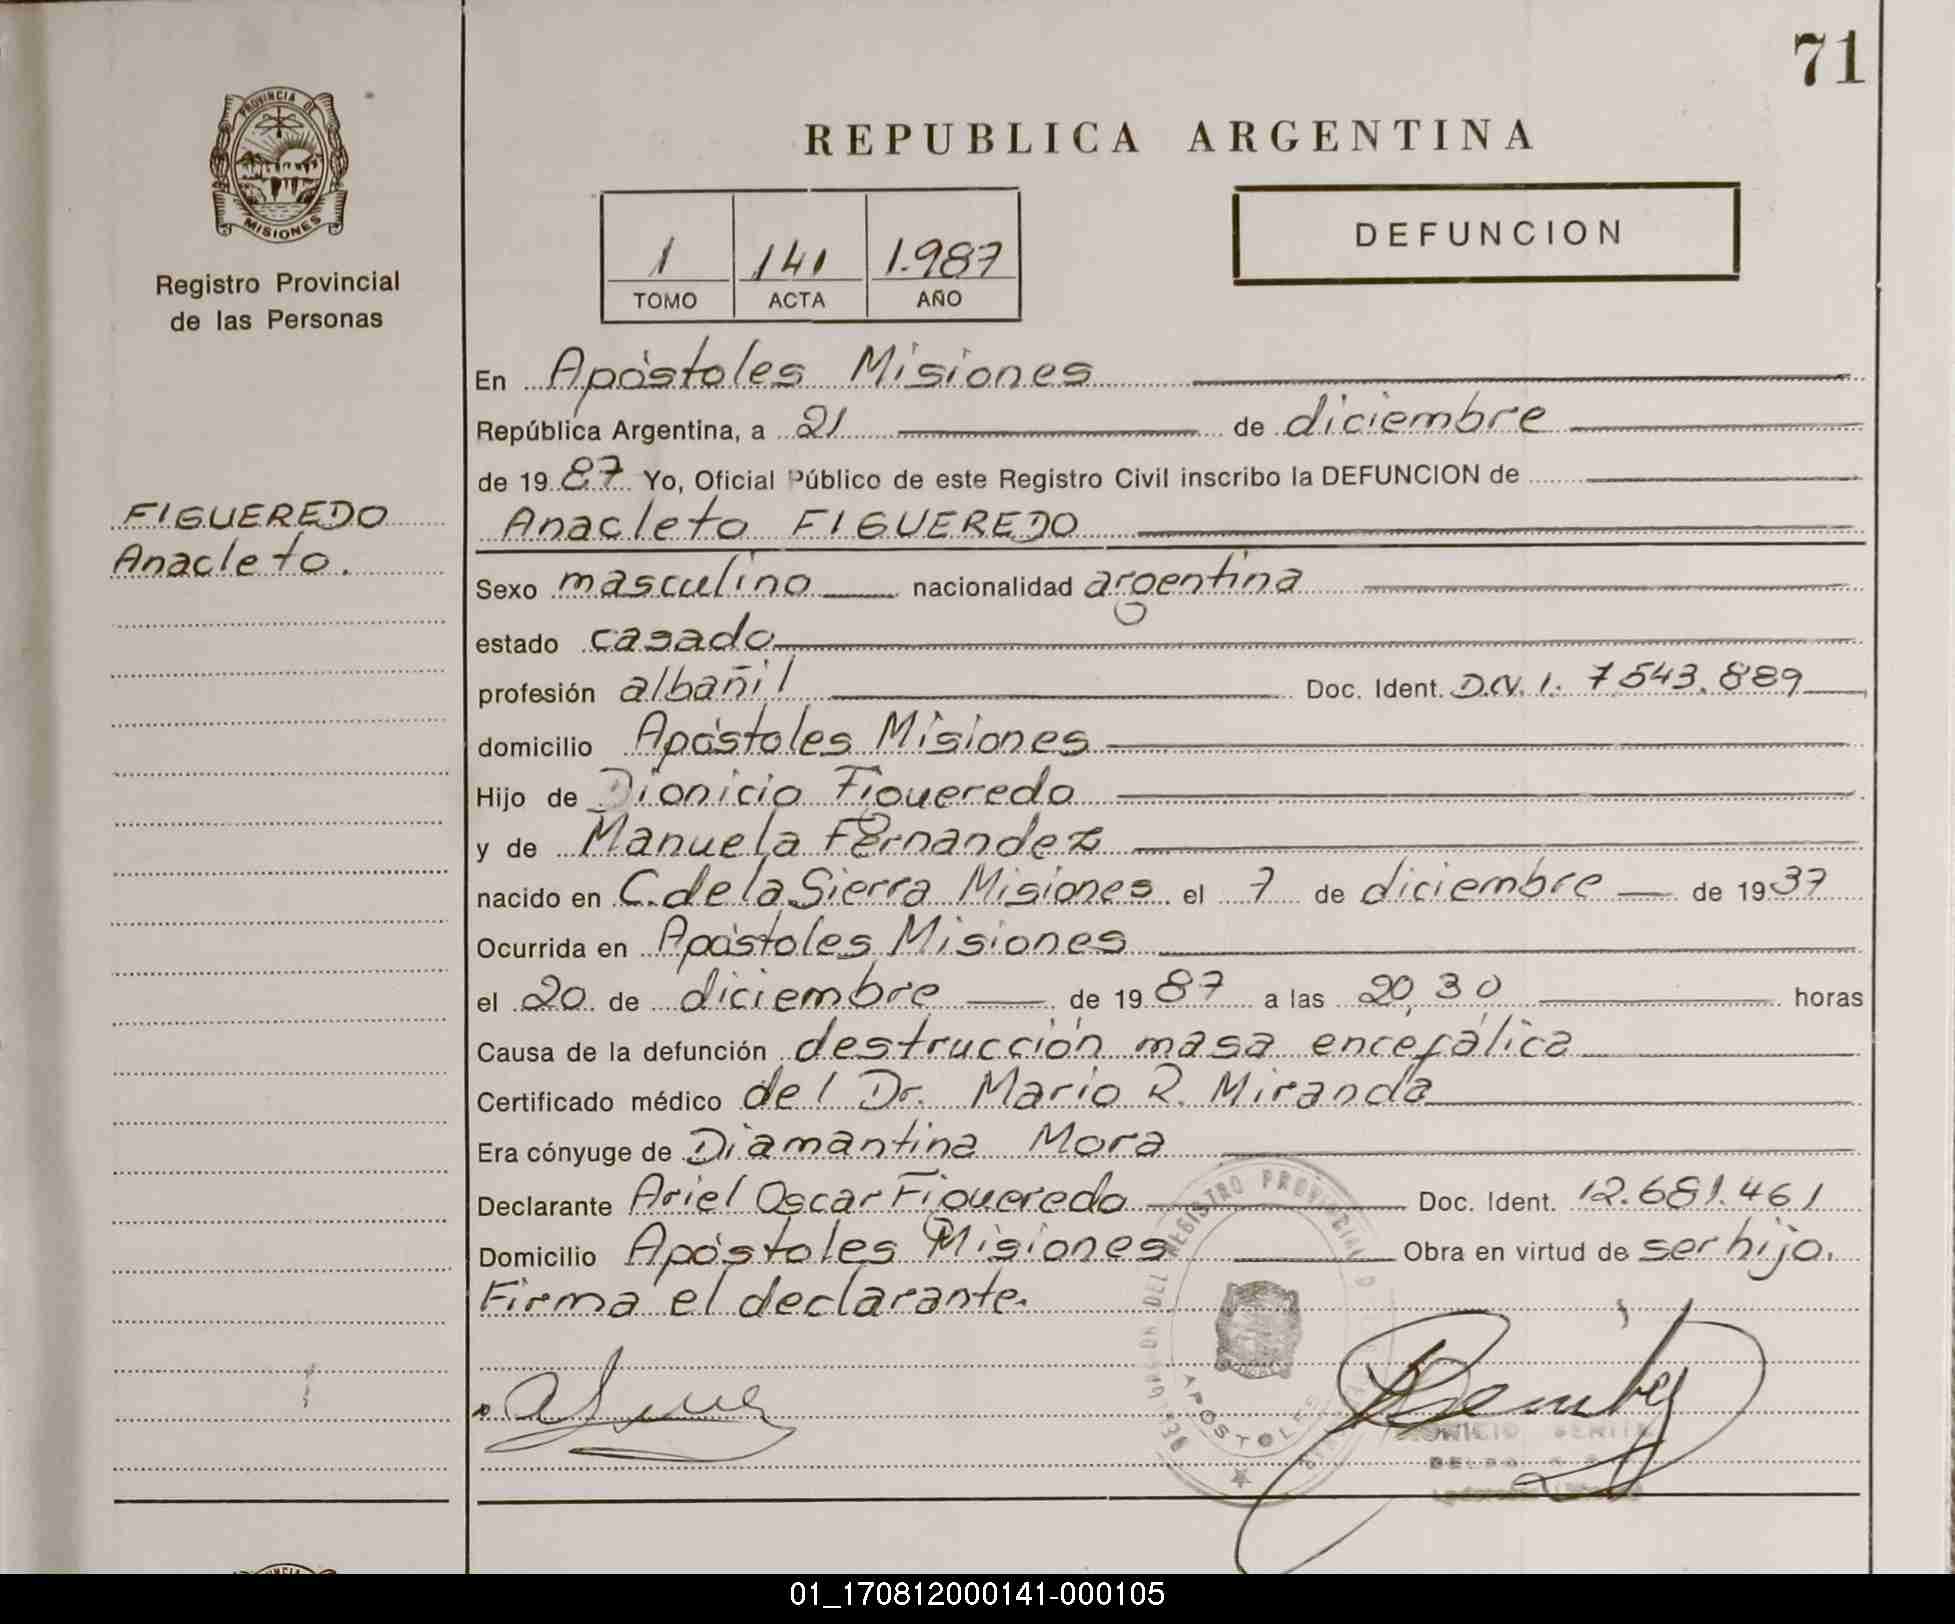 71
PROVINCIA DE
MISIONES
Registro Provincial
de las Personas
REPUBLICA ARGENTINA
1 141 1.987
TOMO ACTA AÑO
DEFUNCION
En Apóstoles Misiones
República Argentina, a 21 de diciembre
de 1987 Yo, Oficial Público de este Registro Civil inscribo la DEFUNCION de
FIGUEREDO
Anacleto.
Anacleto FIGUEREDO
Sexo masculino nacionalidad argentina
estado casado
profesión albañil Doc. Ident. D.N.I. 7.543.889
domicilio Apóstoles Misiones
Hijo de Dionicio Figueredo
y de Manuela Fernandez
nacido en C. de la Sierra Misiones el 7 de diciembre de 1937
Ocurrida en Apóstoles Misiones
el 20 de diciembre de 1987 a las 20,30 horas
Causa de la defunción destrucción masa encefálica
Certificado médico del Dr. Mario R. Miranda
Era cónyuge de Diamantina Mora
Declarante Ariel Oscar Figueredo Doc. Ident. 12.681.461
Domicilio Apóstoles Misiones Obra en virtud de ser hijo.
Firma el declarante.
REGISTRO PROVINCIAL
APOSTOLES
01_170812000141-000105